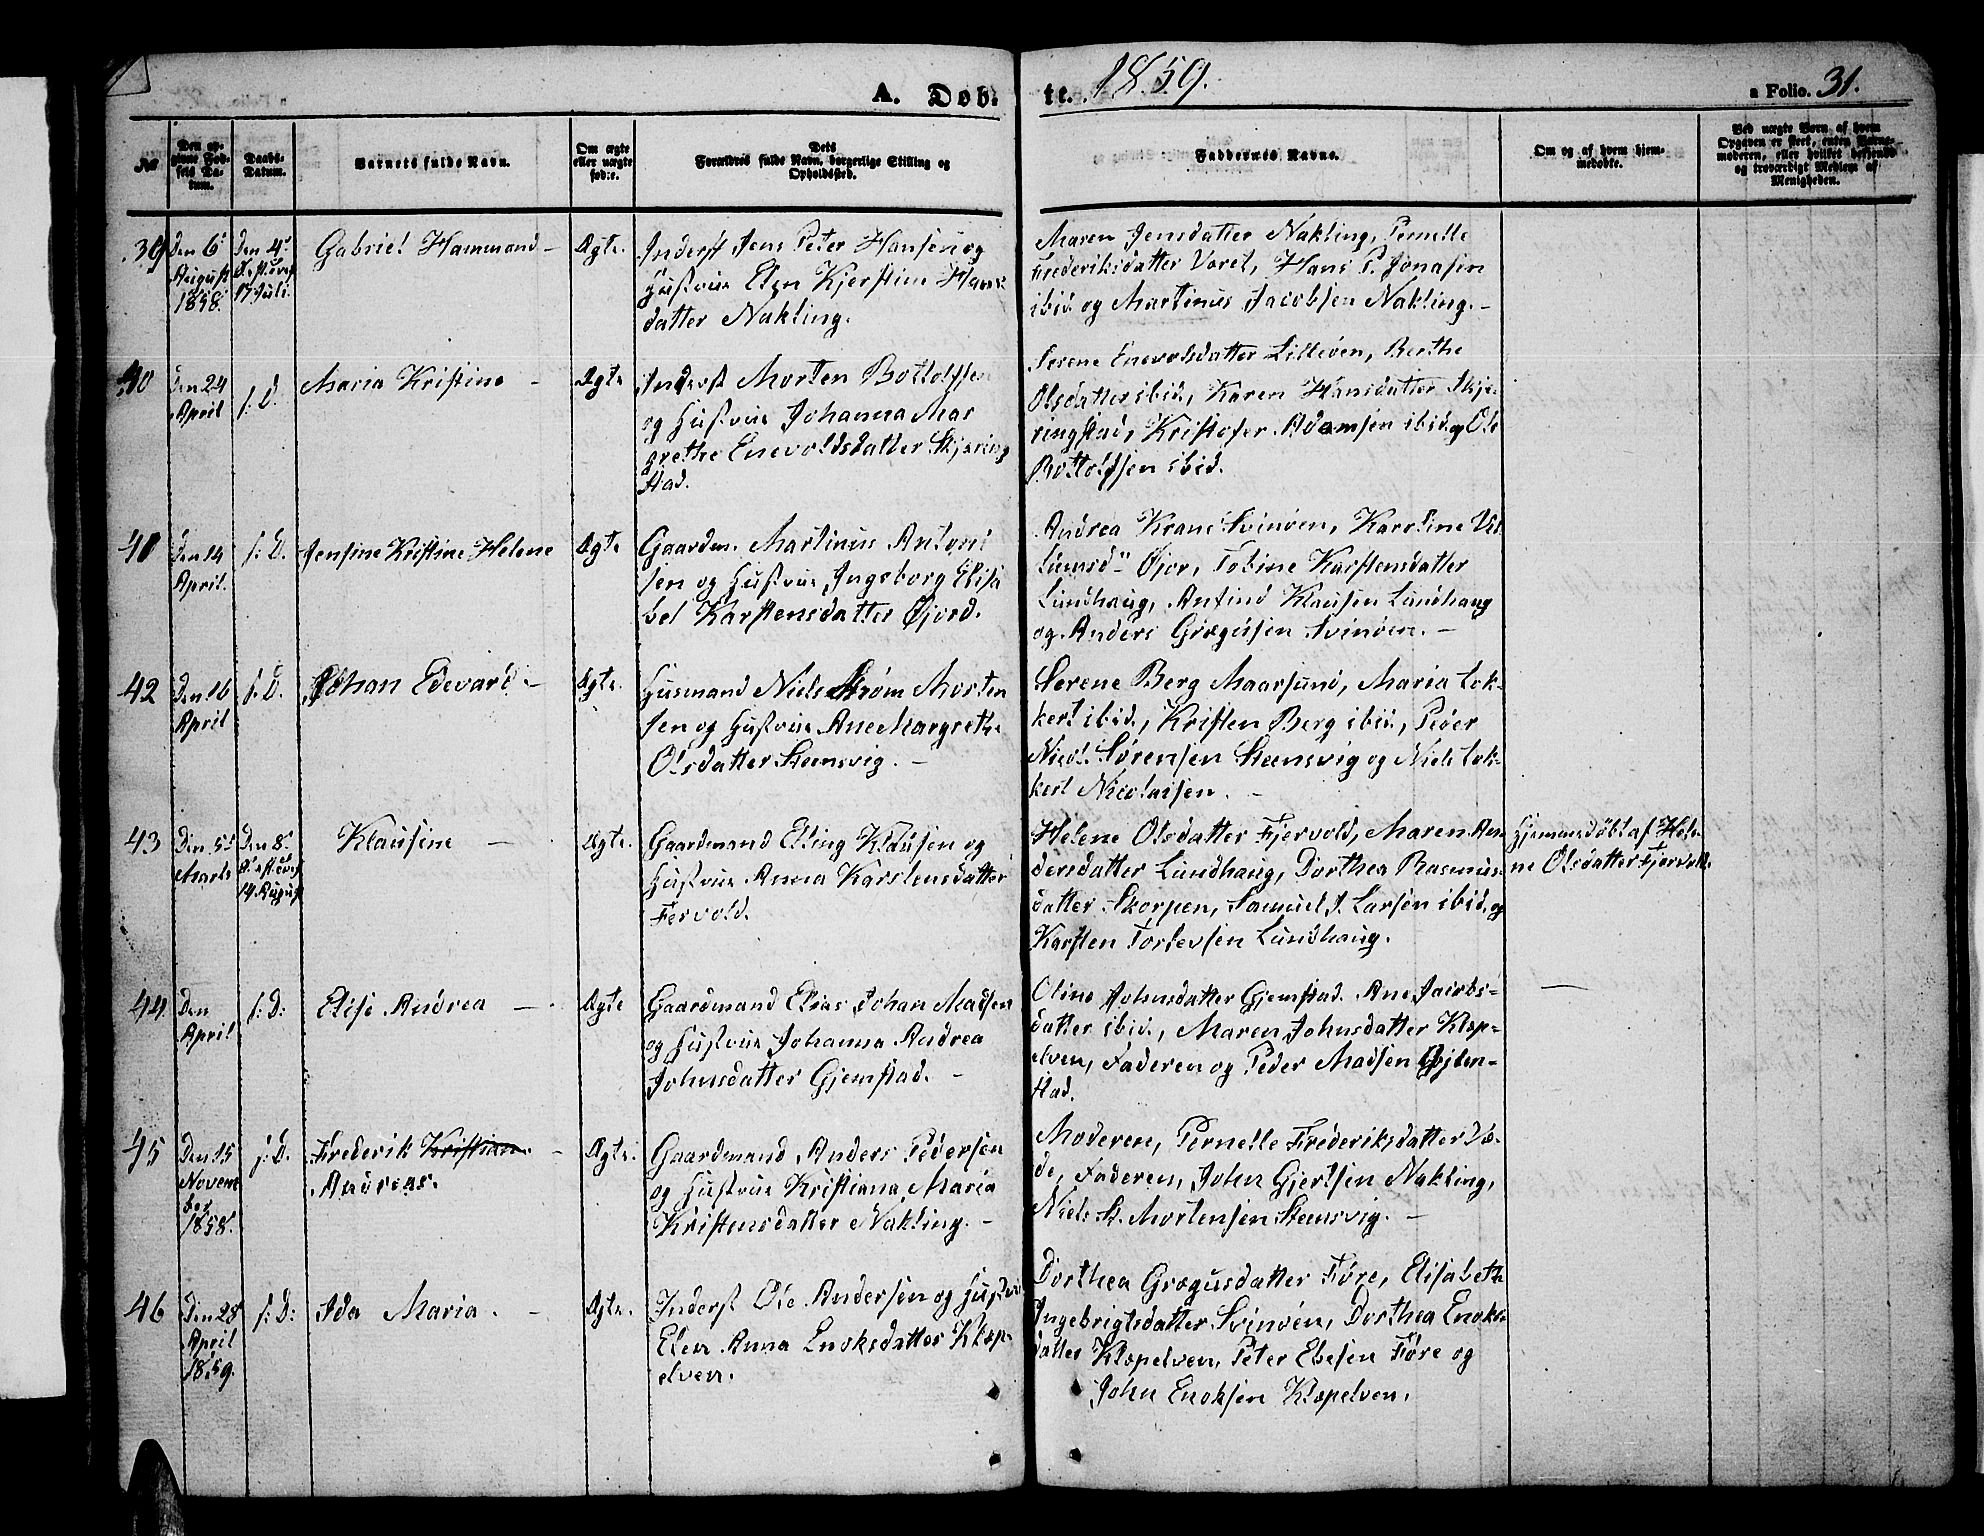 A. Døb. te. 1859. a Folio. 31.
No
Den op-
givne Fød-
sels Da-
tum.
Daabs-
Datum.
Barnets fulde Navn.
Om ægte
eller uægte
født.
Dets
Forældres fulde Navn, borgerlige Stilling og
Opholdssted.
Faddernes Navne.
Om og af hvem hjem-
medøbte.
Ved uægte Børn af hvem
Opgaven er skeet, enten Barne-
moderen, eller hvilket bestemt
og troværdigt Medlem af
Menigheden.
39
Den 6te
August
1858.
Den 4de
17 Juli.
Gabriel Hammond –
Ægte.
Inderst Jens Peter Hansen og
Hustrue Elen Kjerstin Hans
datter Nakling.
Maren Jensdatter Nakling, Pernelle
Frederiksdatter Voret, Hans P. Jonasen
ibid og Martinus Jacobsen Nakling. –
40
Den 24
April
s: D.
Maria Kristine –
Ægte
Inderst Morten Bottolfsen
og Hustrue Johanna Mar
grethe Enevoldsdatter Skjæring
stad.
Serene Enevolsdatter Lilleøen, Berthe
Olsdatter ibid., Karen Hansdatter Skje-
ringstad, Kristofer Adamsen ibid. og Ole
Bottolfsen ibid.
41
Den 14
April.
s: D.
Jensine Kristine Helene
Ægte
Gaardm. Martinus Antoni
sen og Hustrue Ingeborg Elisa
bet Karstensdatter Øjord.
Andrea Krane Svinøen, Karoline Vil
lumsd" Øjor, Tobine Karstensdatter
Lundhaug, Antind Klausen Lundhaug
og Anders Grægusen Svinøen. –
42
Den 16
April
s: D.
Johan Edevard –
Ægte.
Husmand Niels Strøm Morten
sen og Hustrue Ane Margrethe
Olsdatter Steensvig. –
Serene Berg Maarsund, Maria Lok-
kert ibid., Kristen Berg ibid., Peder
Nicol. Sørensen Steensvig og Niels Lok-
kert Nicolaisen. –
43
Den 5te
Marts
Den 8de
14 August
Klausine –
Ægte.
Gaardmand Eling Klausen og
Hustrue Anna Karstensdatter
Fervold.
Helene Olsdatter Fjervold, Maren An-
dersdatter Lundhaug, Dorthea Rasmus-
datter Skorpen, Samuel J. Larsen ibid. og
Karsten Torlevsen Lundhaug.
Hjemmedøbt af Hele-
ne Olsdatter Fjervold.
44
Den
April
s: D:
Elise Andrea –
Ægte
Gaardmand Elias Johan Madsen
og Hustrue Johanna Andrea
Johnsdatter Gjemstad. –
Oline Johnsdatter Gjemstad. Ane Jacobs-
datter ibid., Maren Johnsdatter Klæp-
elven, Faderen og Peder Madsen Gjem-
stad.
—
45
Den 15
Novem
ber
1858.
s: D.
Frederik Kristian –
Andreas.
Ægte.
Gaardmand Anders Pedersen
og Hustrue Kristiana Maria
Kristensdatter Nakling. –
Moderen, Pernelle Frederiksdatter Væ-
de, Faderen, John Gjertsen Nakling,
Niels St. Mortensen Steensvig. –
46
Den 28
April
1859.
s: D:
Ida Maria. –
Ægte.
Inderst Ole Andersen og Hustrue
Elen Anna Enoksdatter Klæp-
elven.
Dorthea Grægusdatter Føre, Elisabeth
Ingebrigtsdatter Svinøen, Dorthea Enoks-
datter Klæpelven, Peter Ebesen Føre og
John Enoksen Klæpelven.